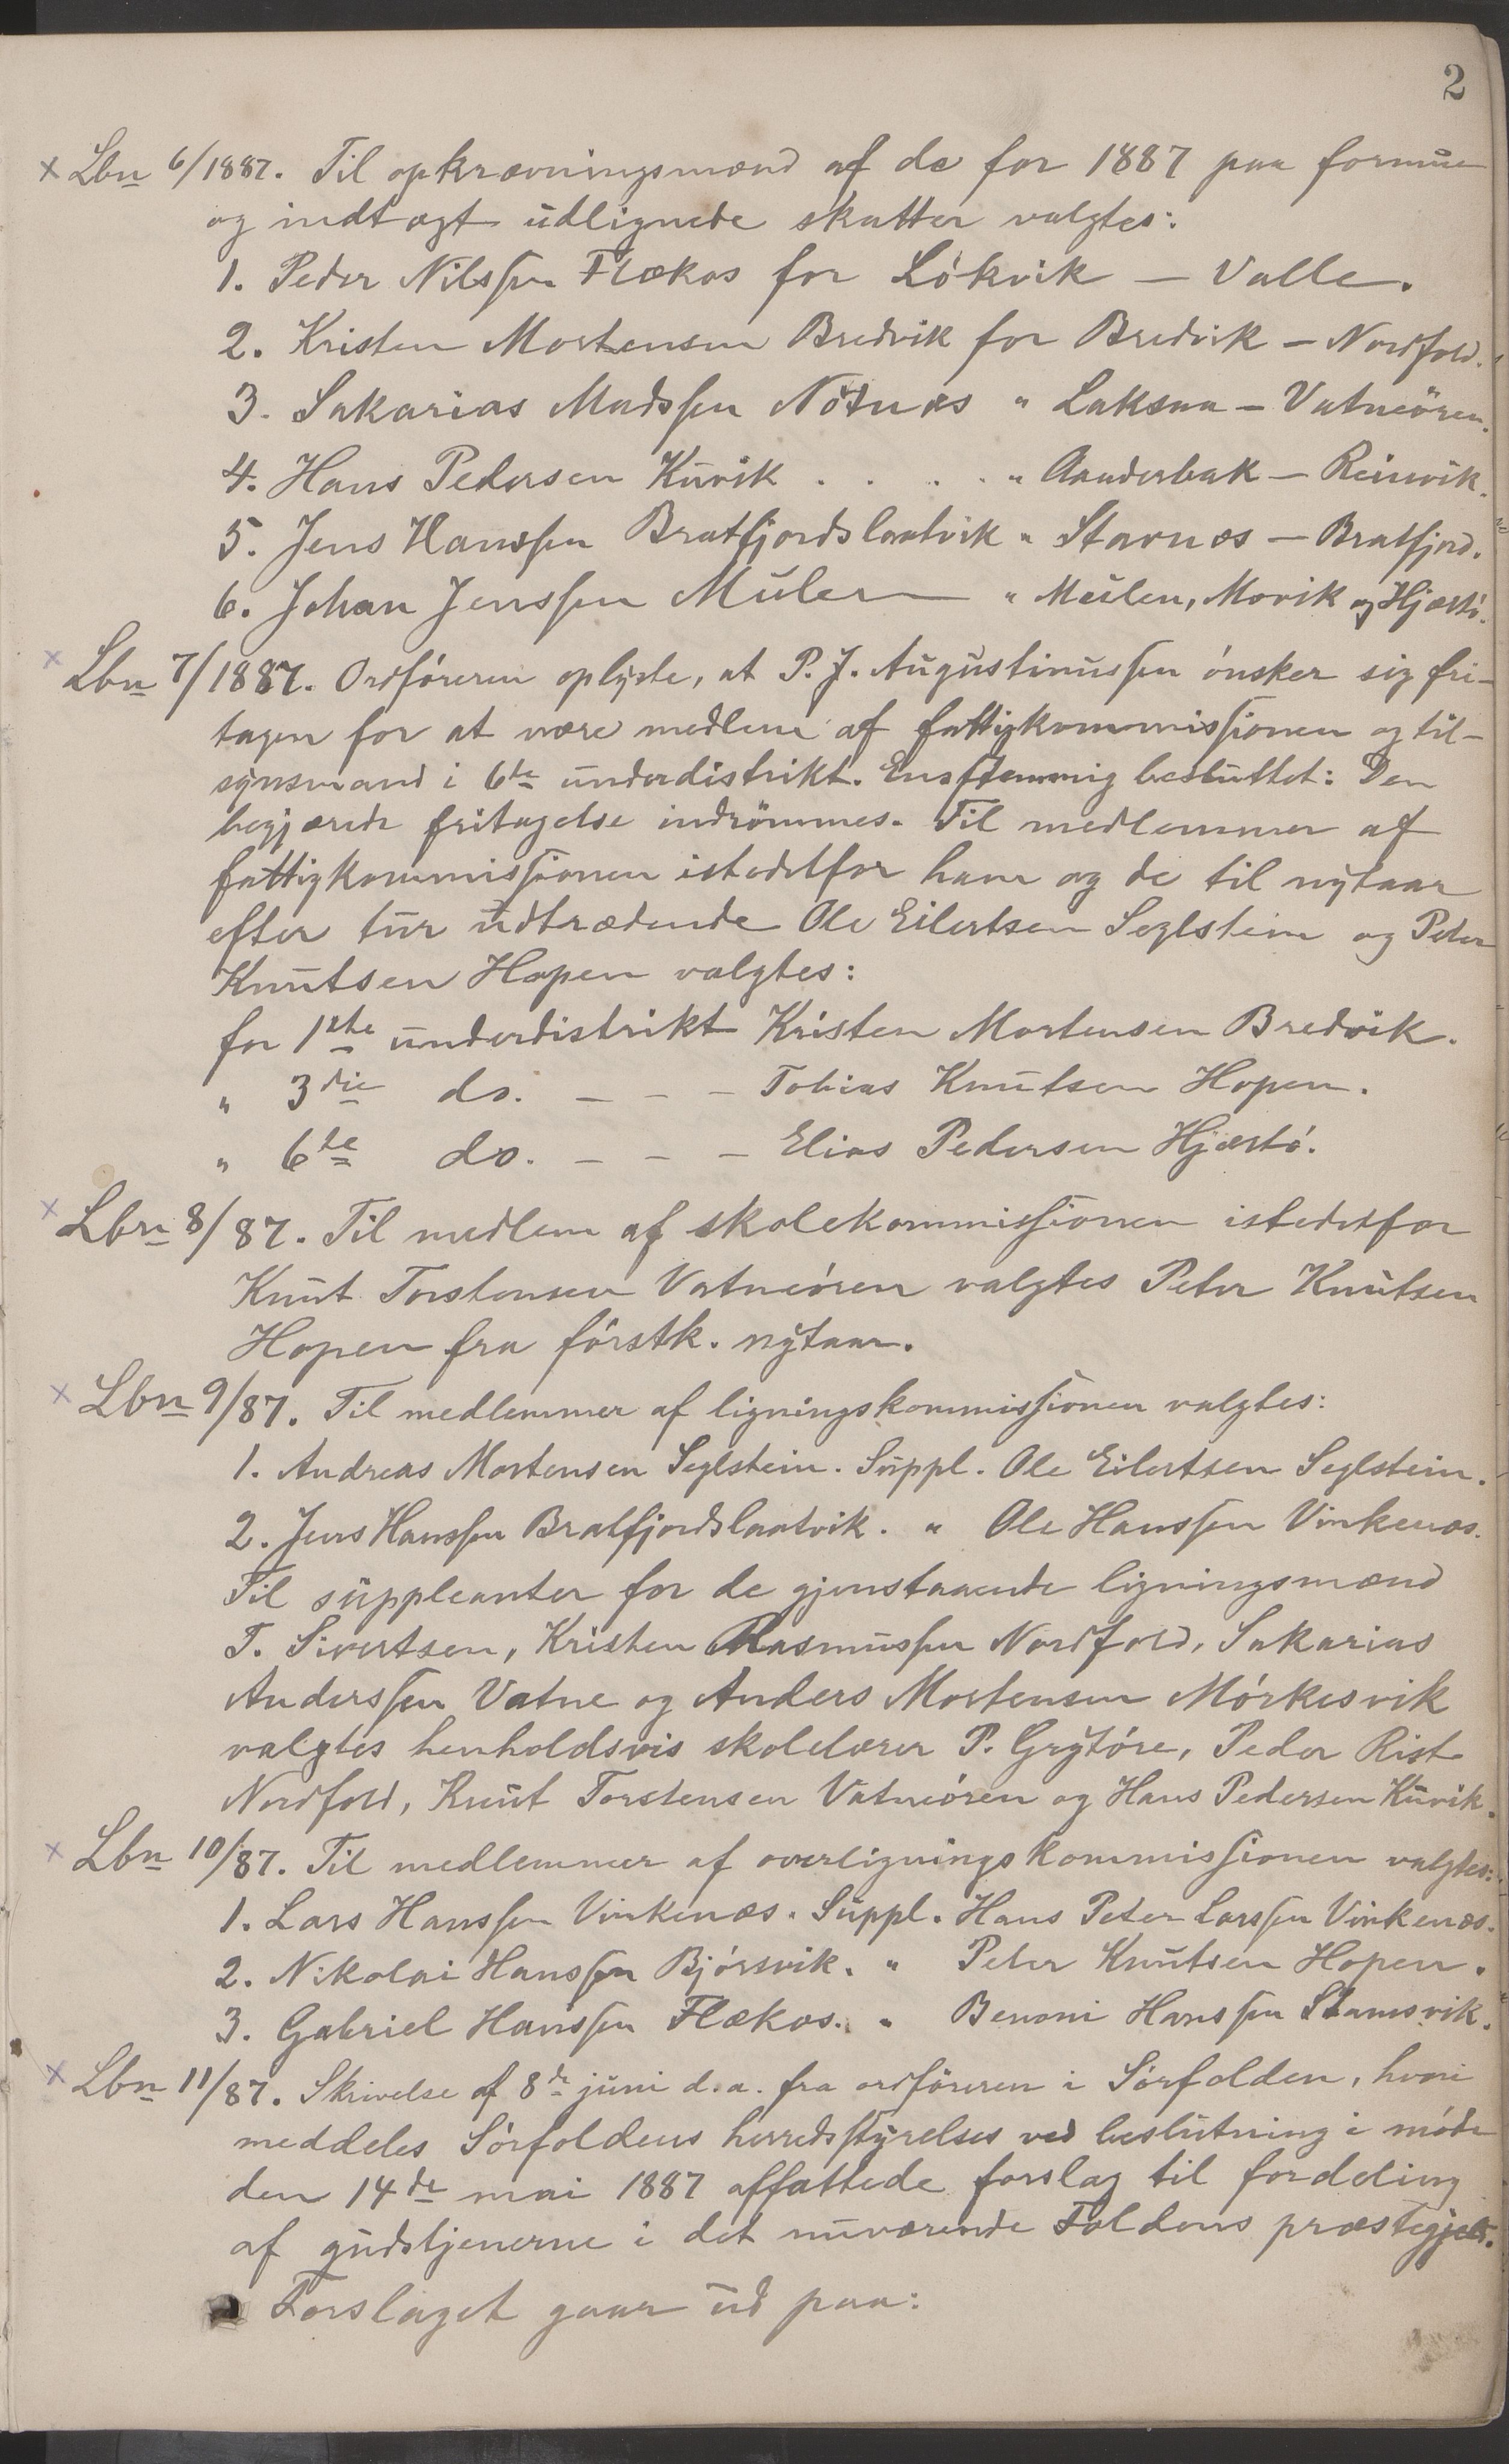 2
× Lbn 6/1887. Til opkrævningsmænd af de for 1887 paa formue
og indtægt udlignede skatter valgtes:
1. Peder Nilssen Flækøs for Lókvik — Valle.
2. Kristen Mortensen Bredvik for Bredvik — Nordfold.
3. Sakarias Madssen Nötnæs " Laksaa — Vatneören.
4. Hans Pedersen Kúvik . . . . " Aanderbak — Reinvik.
5. Jens Hanssen Bratfjordslaatvik " Stavnæs — Bratfjord.
6. Johan Jenssen Múlen " Múlen, Movik og Hjærtö.
× Lbn 7/1887. Ordföreren oplyste, at P. J. Augustinussen ónsker sig fri-
tagen for at være medlem af fattigkommissionen og til-
synsmand i 6te underdistrikt. Enstemmig besluttet: Den
begjærede fritagelse indrömmes. Til medlemmer af
fattigkommissionen istedetfor ham og de til nytaar
efter tur udtrædende Ole Eilertsen Seglstein og Peter
Knutsen Hopen valgtes:
for 1ste underdistrikt Kristen Mortensen Bredvik.
" 3die do. — — — Tobias Knutsen Hopen.
" 6te do. — — — Elias Pedersen Hjærtó.
× Lbn 8/87. Til medlem af skolekommissionen istedetfor
Knut Torstensen Vatneóren valgtes Peter Knutsen
Hopen fra fórstk. nytaar.
× Lbn 9/87. Til medlemmer af ligningskommissionen valgtes:
1. Andreas Mortensen Seglstein. Suppl. Ole Eilertsen Seglstein.
2. Jens Hanssen Bratfjordslaatvik. " Ole Hanssen Vinkenæs.
Til suppleanter for de gjenstaaende ligningsmænd
T. Sivertsen, Kristen Rasmussen Nordfold, Sakarias
Anderssen Vatne og Anders Mortensen Mórkesvik
valgtes henholdsvis skolelærer P. Grytóre, Peder Rist
Nordfold, Knut Torstensen Vatneóren og Hans Pedersen Kúvik.
× Lbn 10/87. Til medlemmer af overligningskommissionen valgtes:
1. Lars Hanssen Vinkenæs. Suppl. Hans Peter Larssen Vinkenæs.
2. Nikolai Hanssen Bjórsvik. " Peter Knutsen Hopen.
3. Gabriel Hanssen Flækøs. " Benoni Hanssen Stamsvik.
× Lbn 11/87. Skrivelse af 8de juni d.a. fra ordföreren i Sórfolden, hvori
meddeles Sórfoldens herredsstyrelses ved beslutning i móde
den 14de mai 1887 affattede forslag til fordeling
af gudstjenerne i det nuværende Foldens præstegjeld.
Forslaget gaar ud paa: